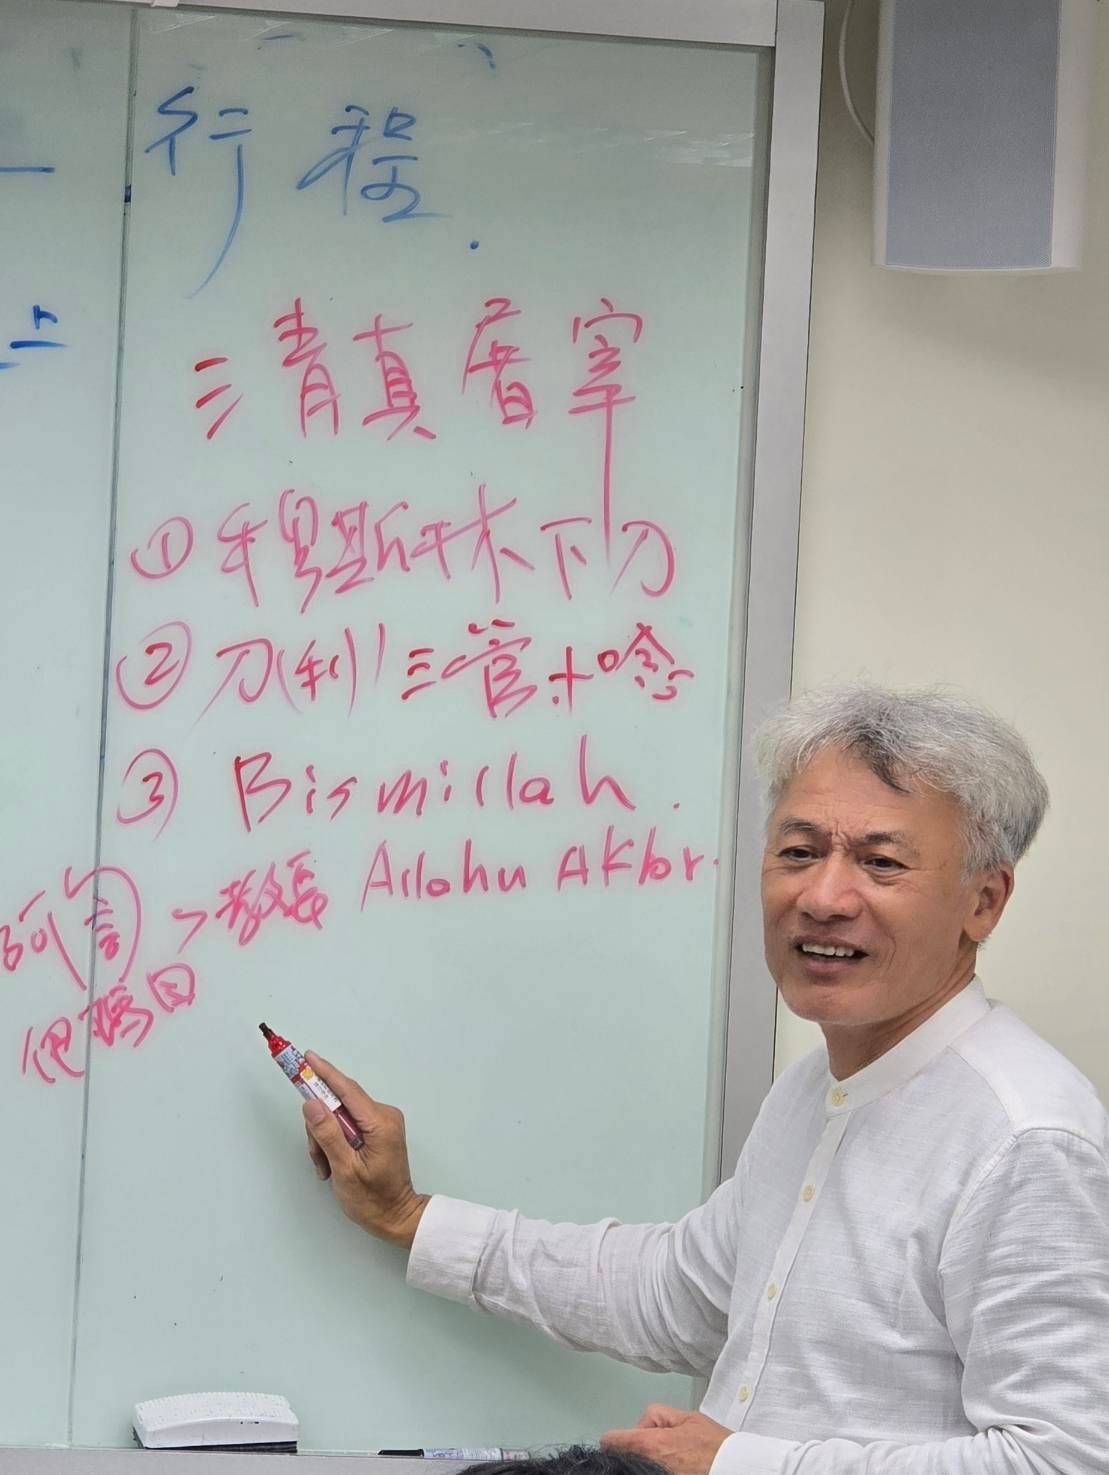 行程.
三清真屠宰
① 穆斯林下刀
② 刀(利) 三管+唸
③ Bismillah.
Allohu AKbr.
阿訇 > 教長
巴瑪目